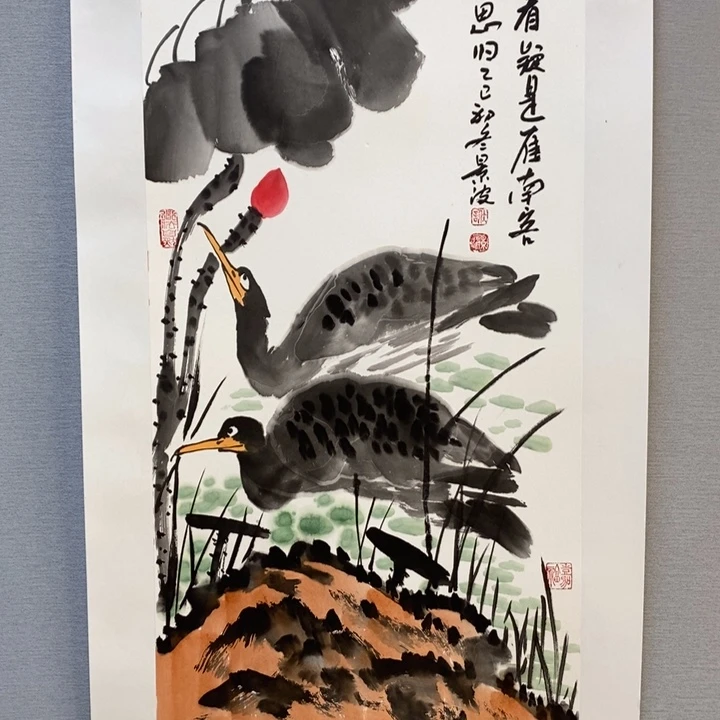 有疑是雁南客
思归乙巳初冬景波